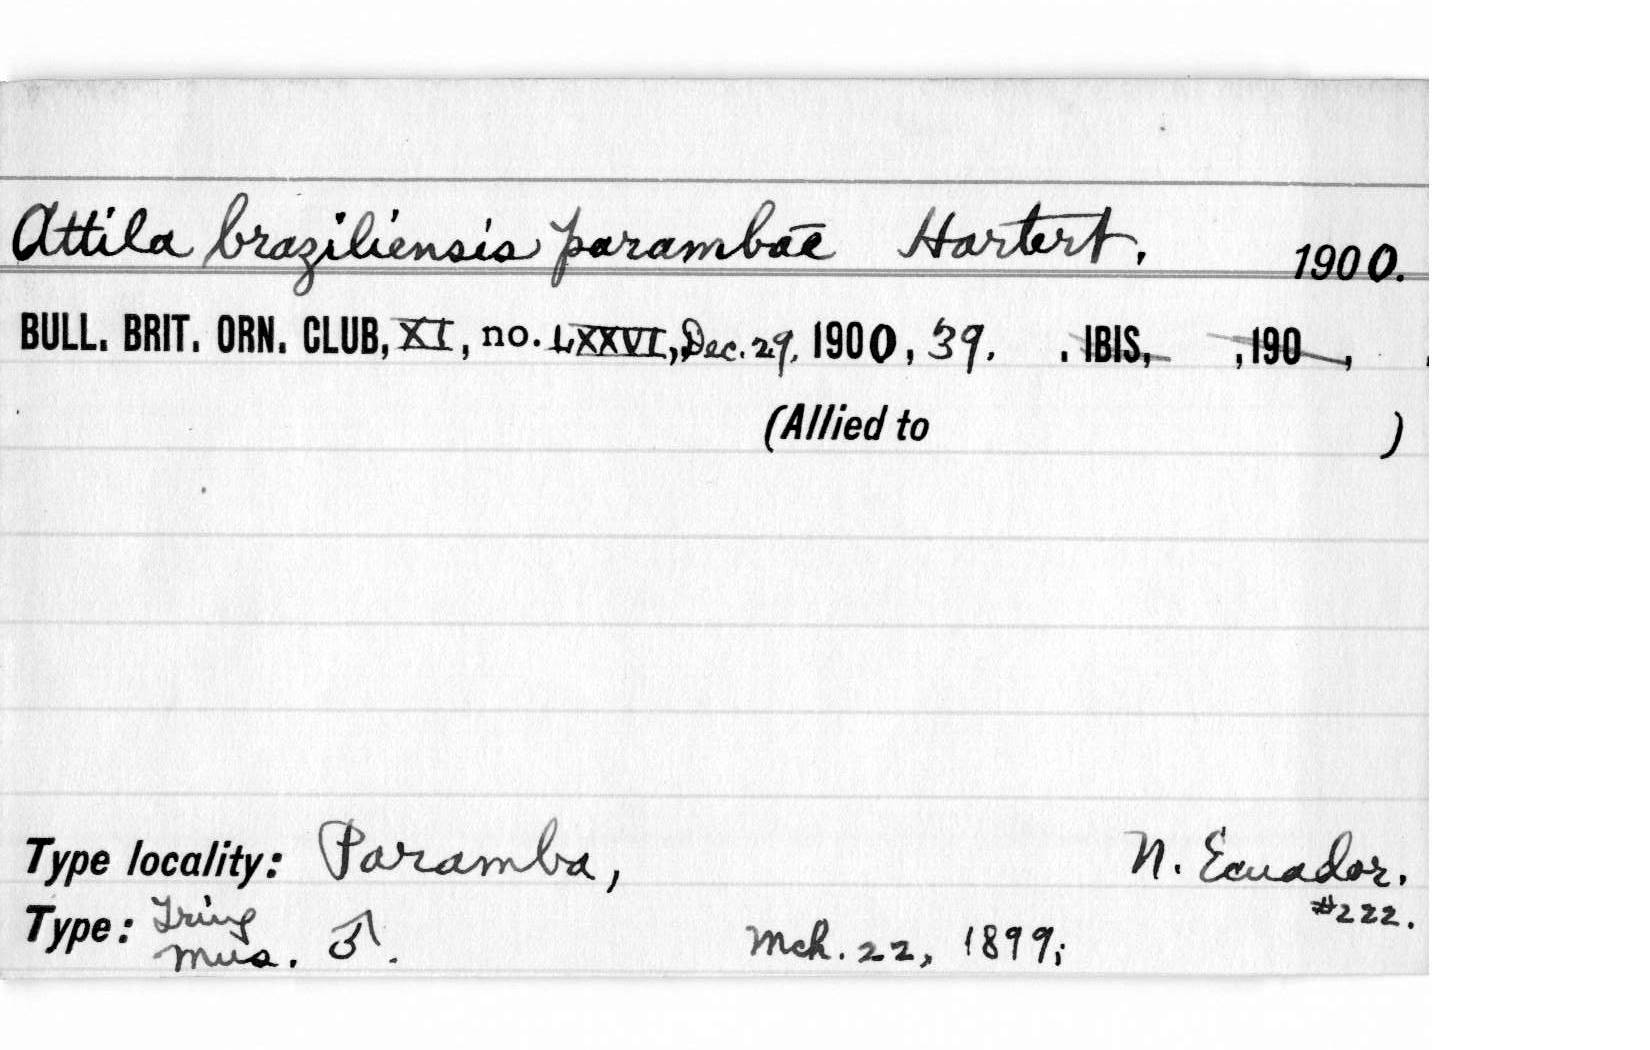 Attila braziliensis parambae Hartert. 1900.
BULL. BRIT. ORN. CLUB, XI, no. LXXVI, Dec. 29, 1900, 39. . IBIS, ,190 , .
(Allied to )
Type locality: Paramba, N. Ecuador.
#222.
Type: Tring Mus. ♂. Mch. 22, 1899;